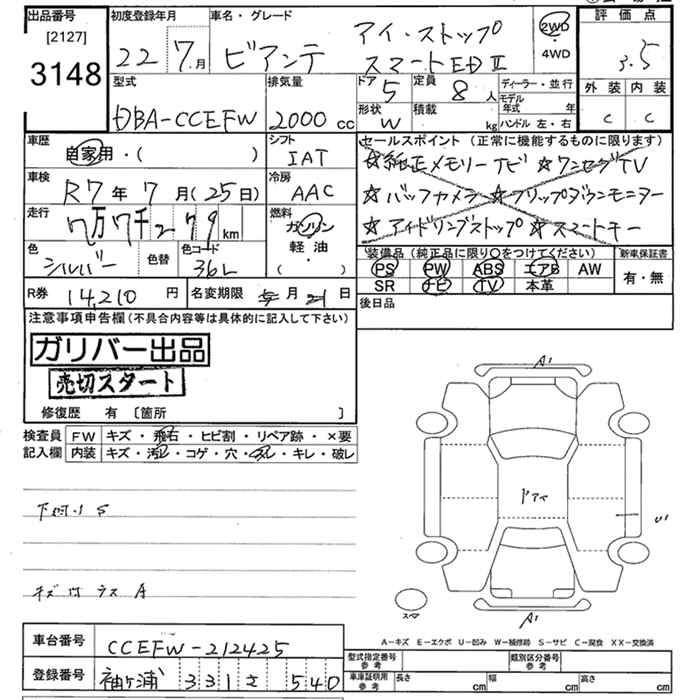 出品番号 初度登録年月 車名・グレード 評価点
[2127]
3148
22 7月 ビアンテ アイ・ストップ スマートEDⅡ 2WD・4WD 3.5
型式 排気量 ドア 定員 ディーラー・並行 外装 内装
DBA-CCEFW 2000cc 5 8人 モデル年式 年 C C
形状 積載 ハンドル 左・右
W kg
車歴 シフト セールスポイント(正常に機能するものに限ります)
自家用・( ) IAT ☆純正メモリーナビ ☆ワンセグTV
車検 冷房
R7年7月(25日) AAC ☆バックカメラ ☆フリップダウンモニター
走行 燃料
7万7千279km ガソリン 軽油 ・( ) ☆アイドリングストップ ☆スマートキー
色 色替 色コード
シルバー 36L
装備品(純正品に限り○をつけてください) 新車保証書
PS PW ABS エアB AW 有・無
SR ナビ TV 本革
R券 14,210円 名変期限 月 21日 後日品
注意事項申告欄(不具合内容等は具体的に記入して下さい)
ガリバー出品
売切スタート
修復歴 有 〔箇所 〕
検査員 FW キズ・飛石・ヒビ割・リペア跡・×要
記入欄 内装 キズ・汚レ・コゲ・穴・スレ・キレ・破レ
A1
ドアイ
U1
下回り S
キズ ガラス A
スペア
A1
A-キズ E-エクボ U-凹み W-補修跡 S-サビ C-腐食 XX-交換済
車台番号 CCEFW-212425
型式指定番号 参考 類別区分番号 参考
登録番号 袖ヶ浦 331 さ 540
車庫証明用 参考 長さ cm 幅 cm 高さ cm